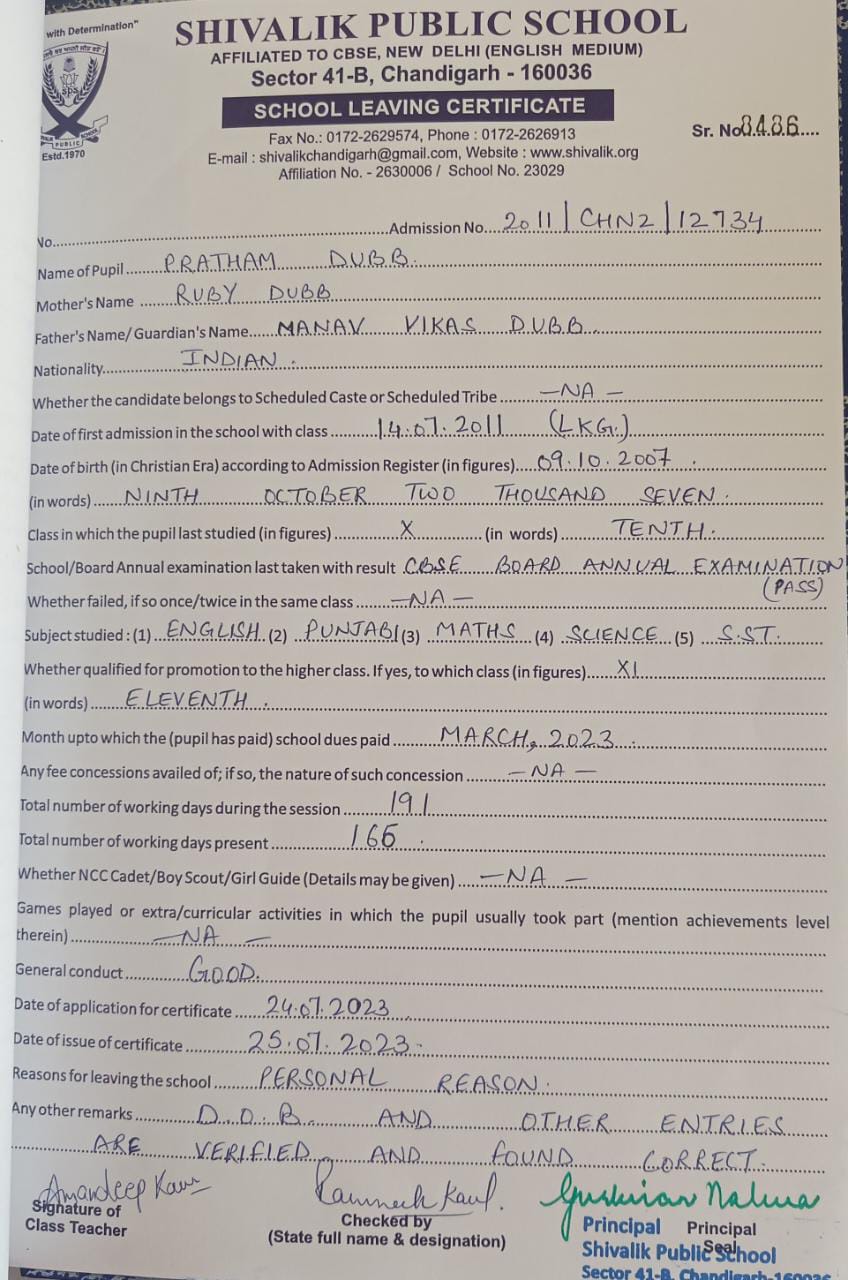 with Determination"
SHIVALIK PUBLIC SCHOOL
AFFILIATED TO CBSE, NEW DELHI (ENGLISH MEDIUM)
Sector 41-B, Chandigarh - 160036
SCHOOL LEAVING CERTIFICATE
Fax No.: 0172-2629574, Phone : 0172-2626913
E-mail : shivalikchandigarh@gmail.com, Website : www.shivalik.org
Affiliation No. - 2630006 / School No. 23029
Sr. No. 8486
SPS
PUBLIC
Estd.1970
No. Admission No. 2011/CHNZ/12734
Name of Pupil PRATHAM DUBB.
Mother's Name RUBY DUBB
Father's Name/ Guardian's Name MANAV VIKAS DUBB.
Nationality INDIAN.
Whether the candidate belongs to Scheduled Caste or Scheduled Tribe -NA-
Date of first admission in the school with class 14.07.2011 (LKG.)
Date of birth (in Christian Era) according to Admission Register (in figures) 09.10.2007.
(in words) NINTH OCTOBER TWO THOUSAND SEVEN.
Class in which the pupil last studied (in figures) X (in words) TENTH.
School/Board Annual examination last taken with result CBSE BOARD ANNUAL EXAMINATION
(PASS)
Whether failed, if so once/twice in the same class -NA-
Subject studied : (1) ENGLISH (2) PUNJABI (3) MATHS (4) SCIENCE (5) S.ST.
Whether qualified for promotion to the higher class. If yes, to which class (in figures) XI
(in words) ELEVENTH.
Month upto which the (pupil has paid) school dues paid MARCH, 2023.
Any fee concessions availed of; if so, the nature of such concession -NA-
Total number of working days during the session 191
Total number of working days present 166.
Whether NCC Cadet/Boy Scout/Girl Guide (Details may be given) -NA-
Games played or extra/curricular activities in which the pupil usually took part (mention achievements level
therein) -NA-
General conduct GOOD.
Date of application for certificate 24.07.2023
Date of issue of certificate 25.07.2023.
Reasons for leaving the school PERSONAL REASON.
Any other remarks D.O.B. AND OTHER ENTRIES
ARE VERIFIED AND FOUND CORRECT.
Amandeep Kaur
Signature of
Class Teacher
Kaul.
Checked by
(State full name & designation)
Principal Principal
Seal
Shivalik Public School
Sector 41-B, Chandigarh-160036